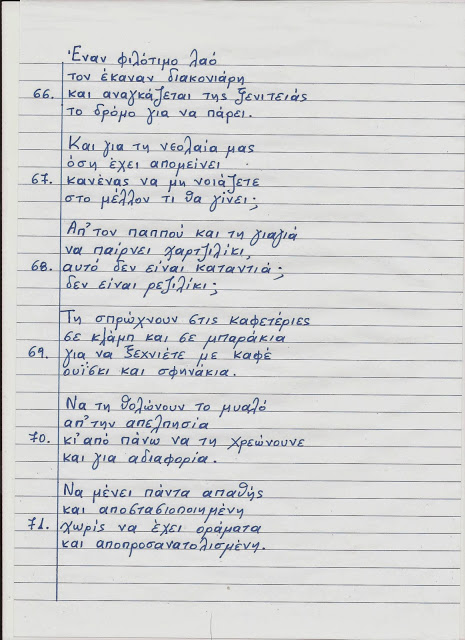 Έναν φιλότιμο λαό
τον έκαναν διακονιάρη
66. και αναγκάζεται της ξενιτειάς
το δρόμο για να πάρει.
Και για τη νεολαία μας
όση έχει απομείνει
67. κανένας να μη νοιάζετε
στο μέλλον τι θα γίνει;
Απ' τον παππού και τη γιαγιά
να παίρνει χαρτζιλίκι,
68. αυτό δεν είναι καταντιά;
δεν είναι ρεζιλίκι;
Τη σπρώχνουν στις καφετέριες
σε κλάμπ και σε μπαράκια
69. για να ξεχνιέτε με καφέ
ουίσκι και σφηνάκια.
Να τη θολώνουν το μυαλό
απ' την απελπησία
70. κι' από πάνω να τη χρεώνουνε
και για αδιαφορία.
Να μένει πάντα απαθής
και αποστασιοποιημένη
71. χωρίς να έχει οράματα
και αποπροσανατολισμένη.